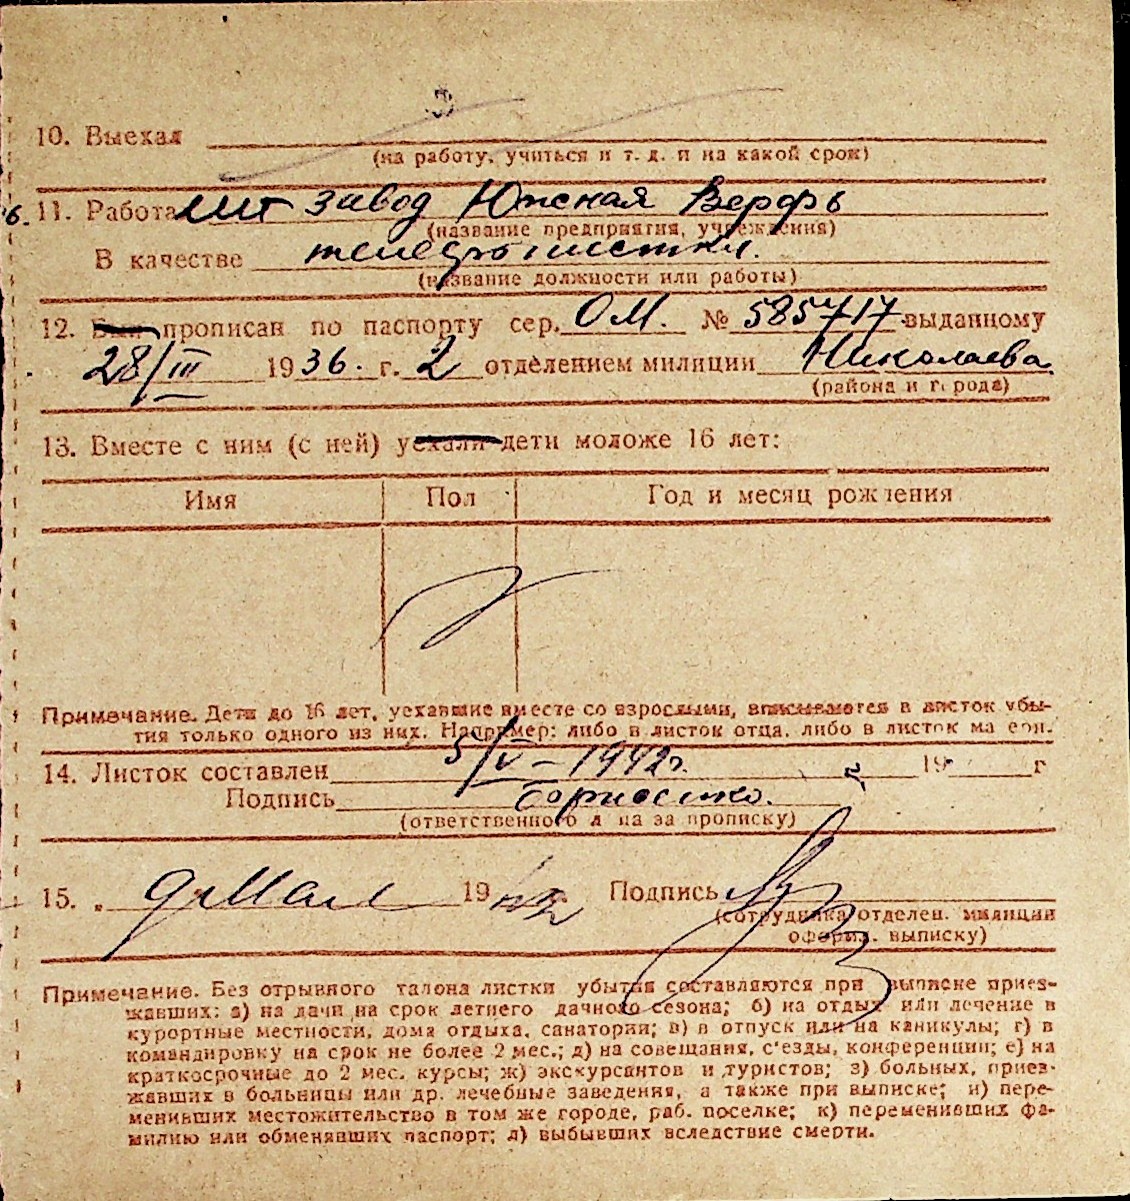 10. Выехал
(на работу, учиться и т. д. и на какой срок)
11. Работа завод Южная Верфь
(название предприятия, учреждения)
В качестве
(название должности или работы)
12. Был прописан по паспорту сер. ОМ. № 585717 выданному
28/III 1936. г. 2 отделением милиции Николаева
(района и города)
13. Вместе с ним (с ней) уехали дети моложе 16 лет:
Имя Пол Год и месяц рождения
Примечание. Дети до 16 лет, уехавшие вместе со взрослыми, вписываются в листок убы-
тия только одного из них. Например: либо в листок отца, либо в листок матери.
14. Листок составлен 5/V – 1942г. 19 г
Подпись
(ответственного лица за прописку)
15. 9 Мая 1942 Подпись
(сотрудника отделен. милиции
оформл. выписку)
Примечание. Без отрывного талона листки убытия составляются при выписке приез-
жавших: а) на дачи на срок летнего дачного сезона; б) на отдых или лечение в
курортные местности, дома отдыха, санатории; в) в отпуск или на каникулы; г) в
командировку на срок не более 2 мес.; д) на совещания, с'езды, конференции; е) на
краткосрочные до 2 мес. курсы; ж) экскурсантов и туристов; з) больных, приез-
жавших в больницы или др. лечебные заведения, а также при выписке; и) пере-
менивших местожительство в том же городе, раб. поселке; к) переменивших фа-
милию или обменявших паспорт; л) выбывших вследствие смерти.